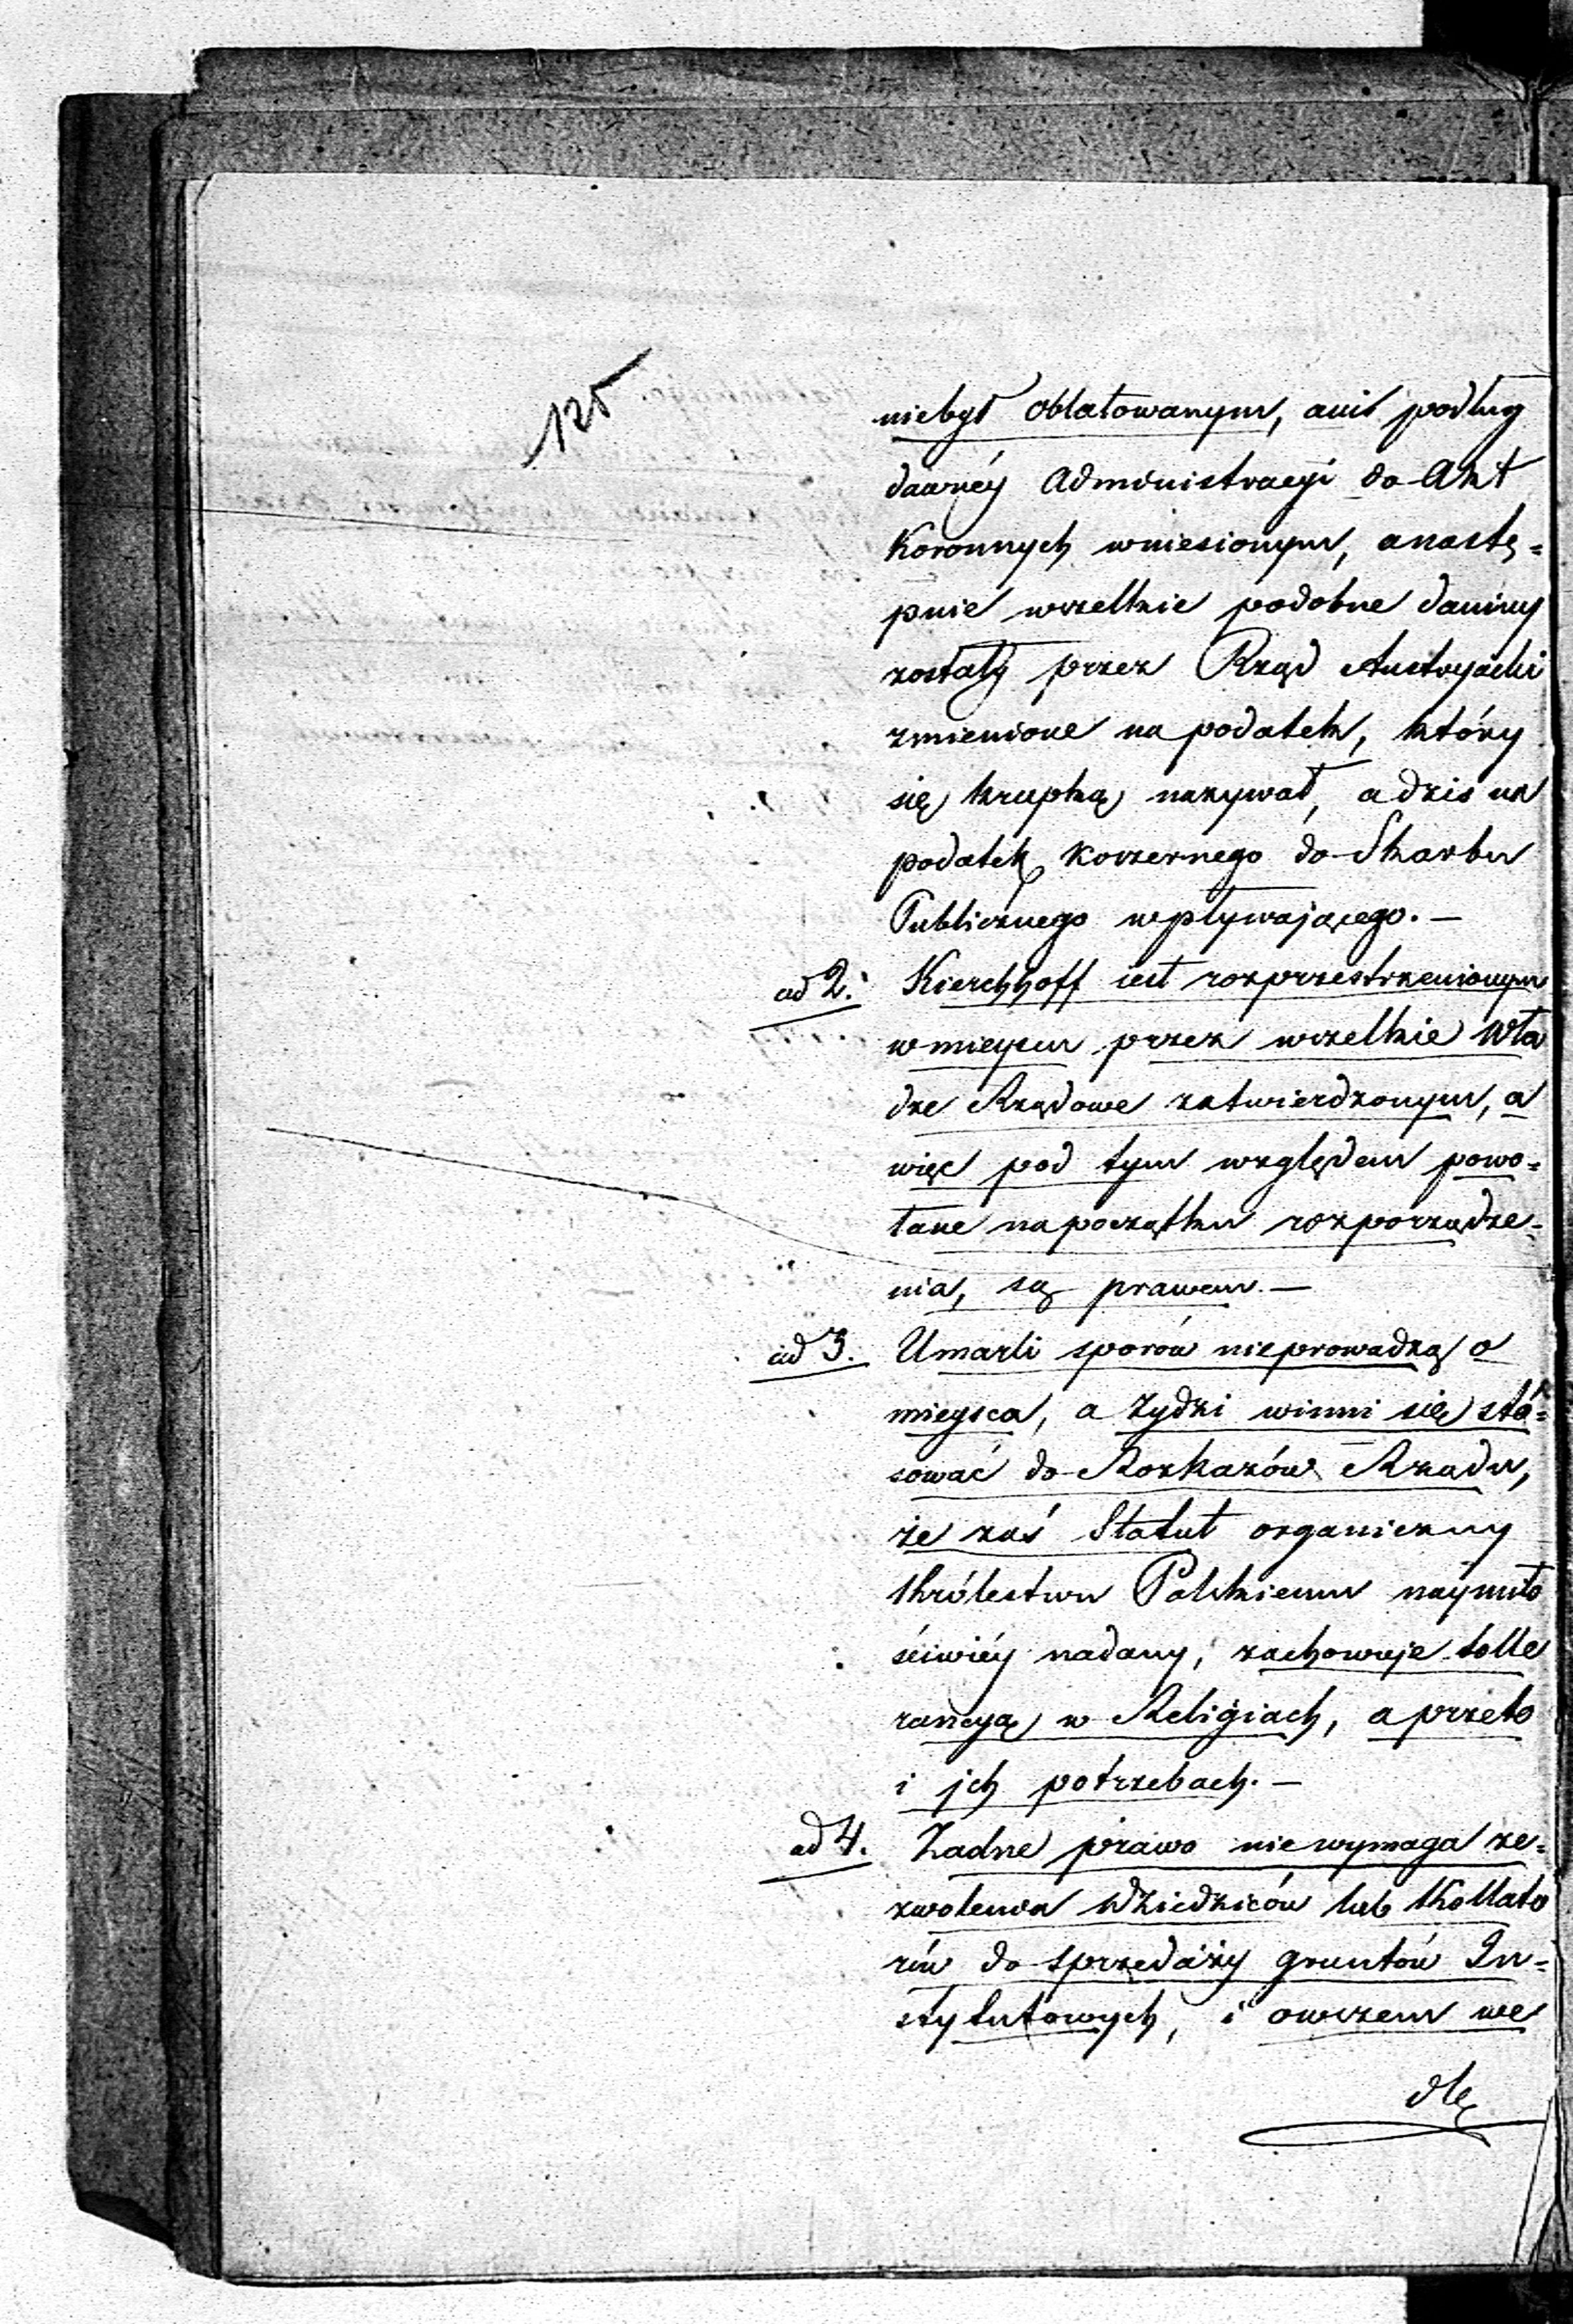 125
niebył oblatowanym, ani podług
dawnéy Administracyi do Akt
Koronnych wniesionym, anastę=
pnie wszelkie podobne daniny
zostały przez Rząd Austryacki
zmienione na podatek, który
się krupką nazywał, a dziś na
podatek koszernego do Skarbu
Publicznego wpływającego. —
ad 2. Kierchhoff iest rozprzestrzenionym
w mieyscu przez wszelkie Wła
dze Rządowe zatwierdzonym, a
więc pod tym względem powo=
łane napoczątku rozporządze=
nia, są prawem. —
ad 3. Umarli sporów nieprowadzą o
mieysca, a Żydzi winni się stó=
sować do Rozkazów Rządu,
że zaś Statut organiczny
Królestwu Polskiemu naymiło
ściwiéy nadany, zachowuje tolle
rancyą w Religiach, a przeto
i jch potrzebach. —
ad 4. Żadne prawo nie wymaga ze=
zwolenia Dziedziców lub Kollato
rów do sprzedaży gruntów In=
stytutowych, i owszem we
dle